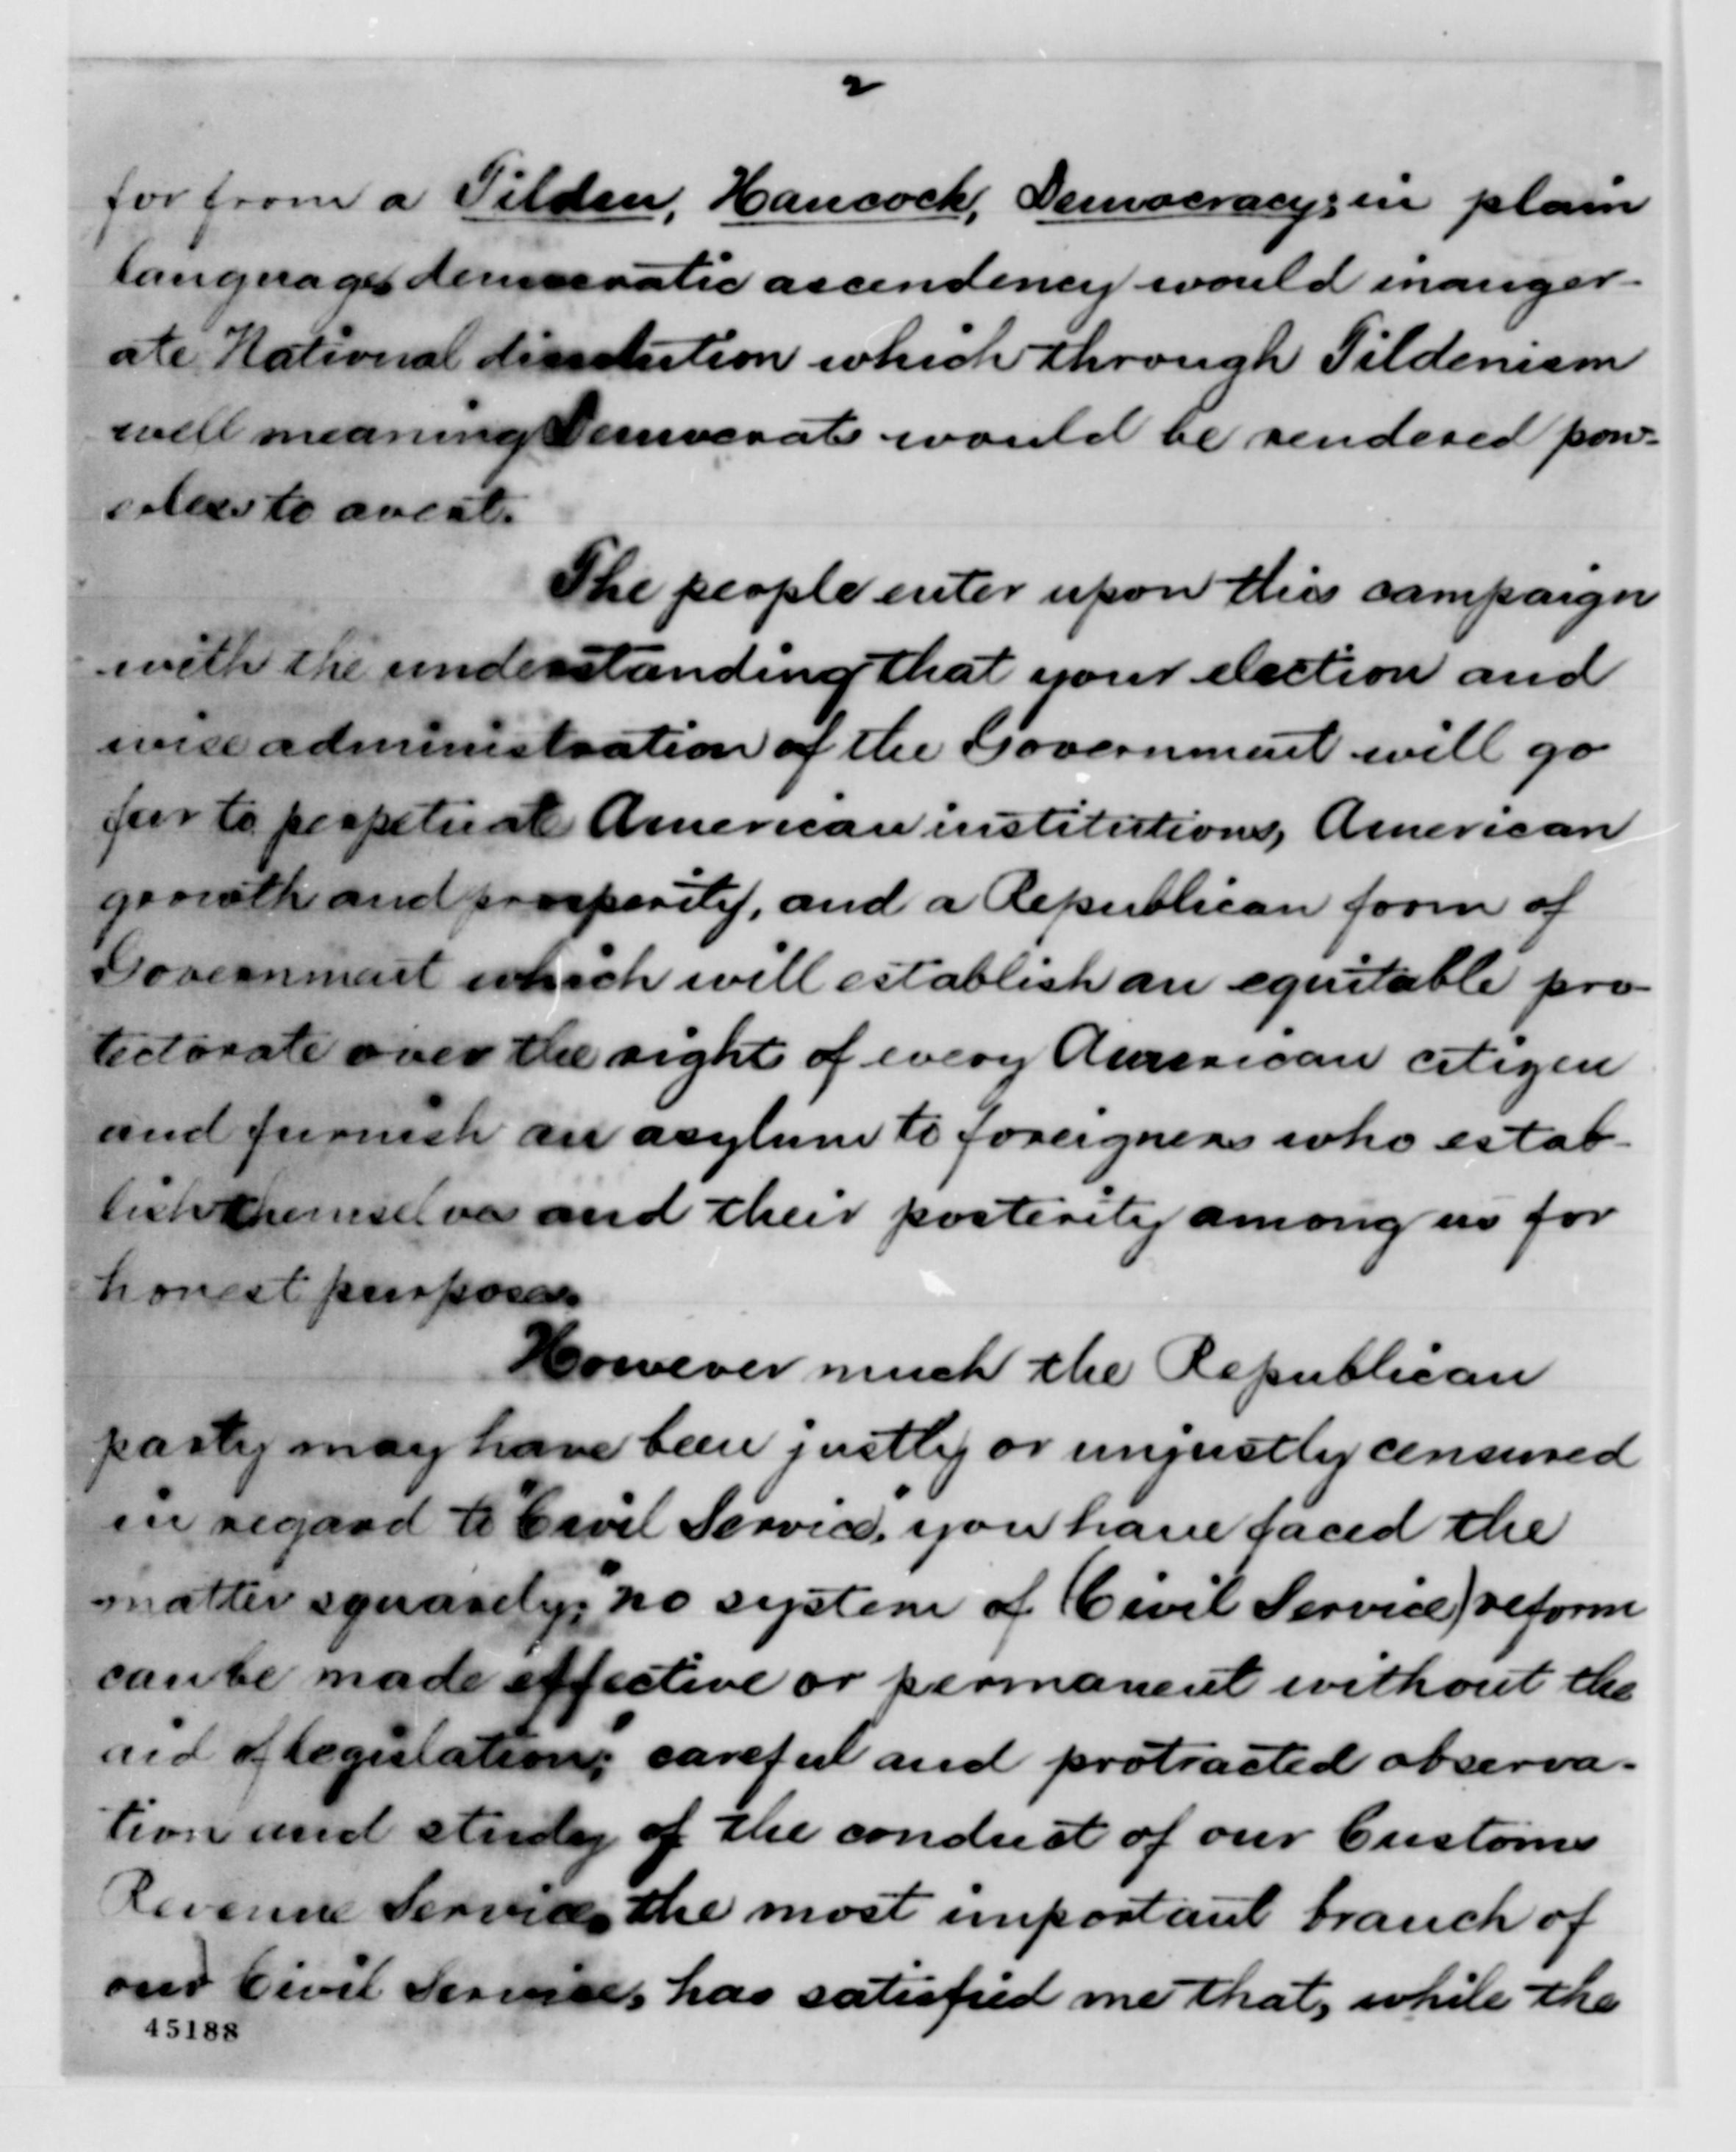 2
for from a Tilden, Hancock, Democracy; in plain
language, democratic ascendency would inauger-
ate National dissolution which through Tildenism
well meaning Democrats would be rendered pow-
erless to avert.
The people enter upon this campaign
with the understanding that your election and
wise administration of the Government will go
far to perpetuate American institutions, American
growth and prosperity, and a Republican form of
Government which will establish an equitable pro-
tectorate over the right of every American citizen
and furnish an asylum to foreigners who estab-
lish themselves and their posterity among us for
honest purposes.
However much the Republican
party may have been justly or unjustly censured
in regard to "Civil Service," you have faced the
matter squarely; "no system of (Civil Service) reform
can be made effective or permanent without the
aid of legislation;" careful and protracted observa-
tion and study of the conduct of our Customs
Revenue Service, the most important branch of
our Civil Service, has satisfied me that, while the
45188